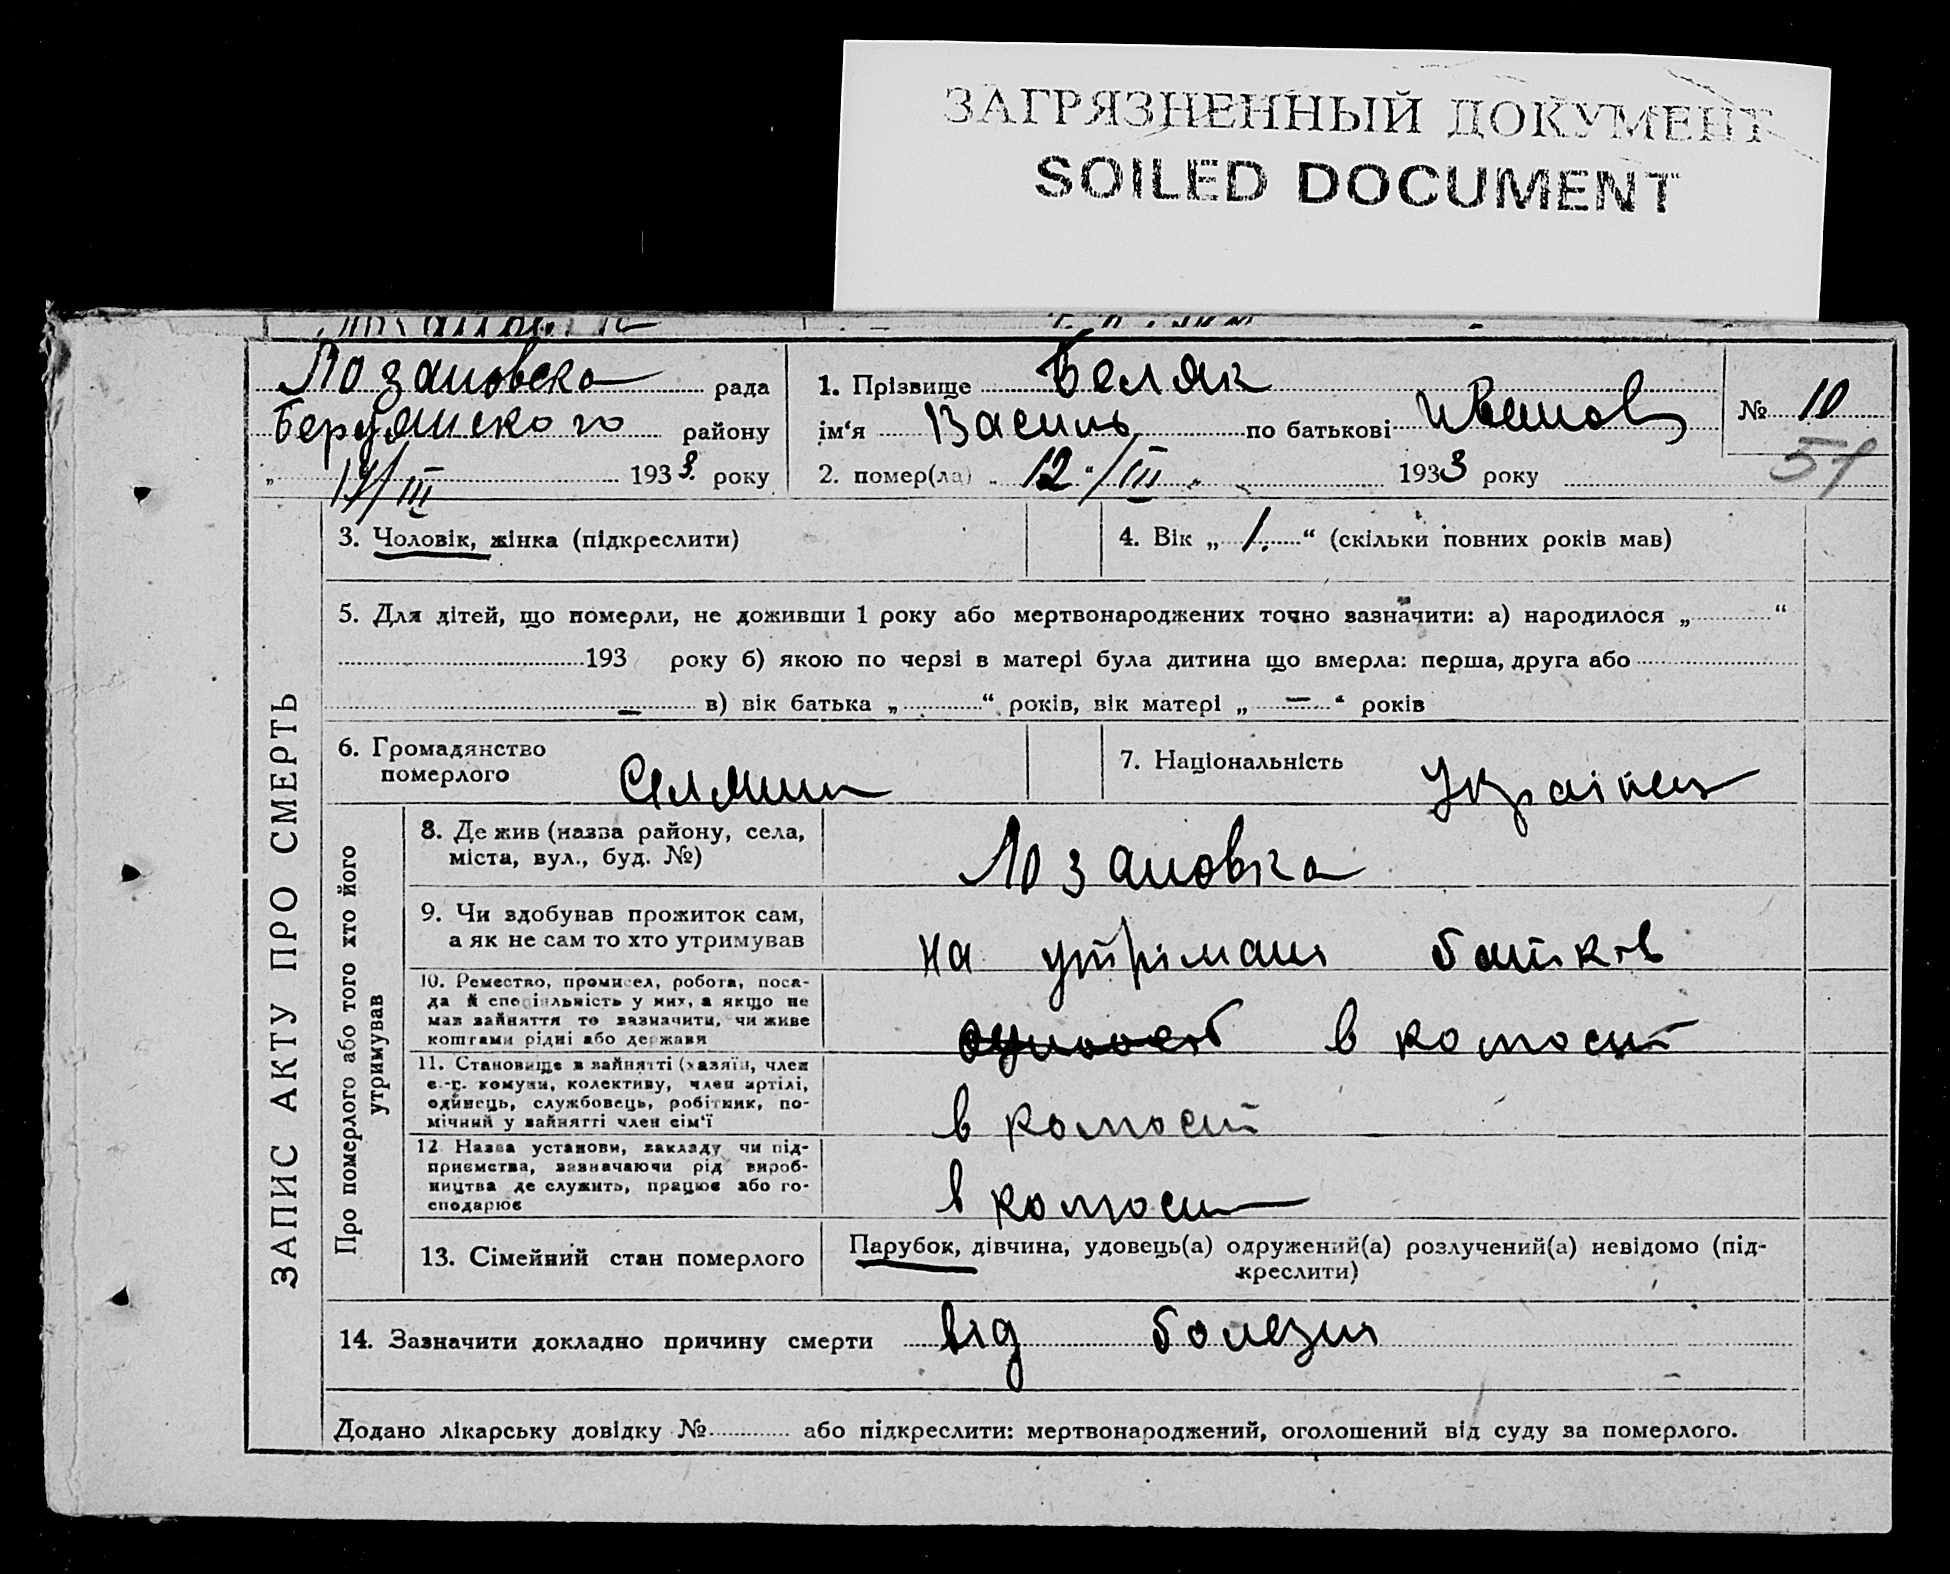 ЗАГРЯЗНЕННЫЙ ДОКУМЕНТ
SOILED DOCUMENT
Лозановска рада
Бердянского району
„ 14/III 1933 року
1. Прізвище Беляк
ім'я Василь по батькові Иванов
2. помер(ла) „12"/III 1933 року
№ 10
51
ЗАПИС АКТУ ПРО СМЕРТЬ
3. Чоловік, жінка (підкреслити)
4. Вік „ 1. “ (скільки повних років мав)
5. Для дітей, що померли, не доживши 1 року або мертвонароджених точно зазначити: а) народилося „ “
193 року б) якою по черзі в матері була дитина що вмерла: перша, друга або
— в) вік батька „ “ років, вік матері „ — “ років
6. Громадянство
померлого Селянин
7. Національність Українец
Про померлого або того хто його
утримував
8. Де жив (назва району, села,
міста, вул., буд. №) Лозановка
9. Чи здобував прожиток сам,
а як не сам то хто утримував на утріманя батьків
10. Ремество, промисел, робота, поса-
да й спеціальність у них, а якщо не
мав зайняття то зазначити, чи живе
коштами рідні або держави в колгоспі
11. Становище в зайнятті (хазяїн, член
с.-г. комуни, колективу, член артілі,
одинець, службовець, робітник, по-
мічний у зайнятті член сім'ї в колгоспі
12 Назва установи, закладу чи під-
приємства, зазначаючи рід вироб-
ництва де служить, працює або го-
сподарює в колгоспі
13. Сімейний стан померлого
Парубок, дівчина, удовець(а) одружений(а) розлучений(а) невідомо (під-
креслити)
14. Зазначити докладно причину смерти від болезня
Додано лікарську довідку № або підкреслити: мертвонароджений, оголошений від суду за померлого.